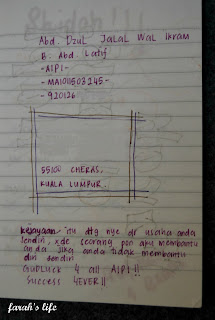 Abd. Dzul Jalal Wal Ikram
B. Abd. Latif
-A1P1-
-MA1011503245-
-920126-
55100 CHERAS,
KUALA LUMPUR.
kejayaan itu dtg nye dr usaha anda
sendiri, xde seorang pon akn membantu
anda jika anda tidak membantu
diri sendiri
GUDLUCK 4 all A1P1 !!
Success 4EVER!!
farah's life